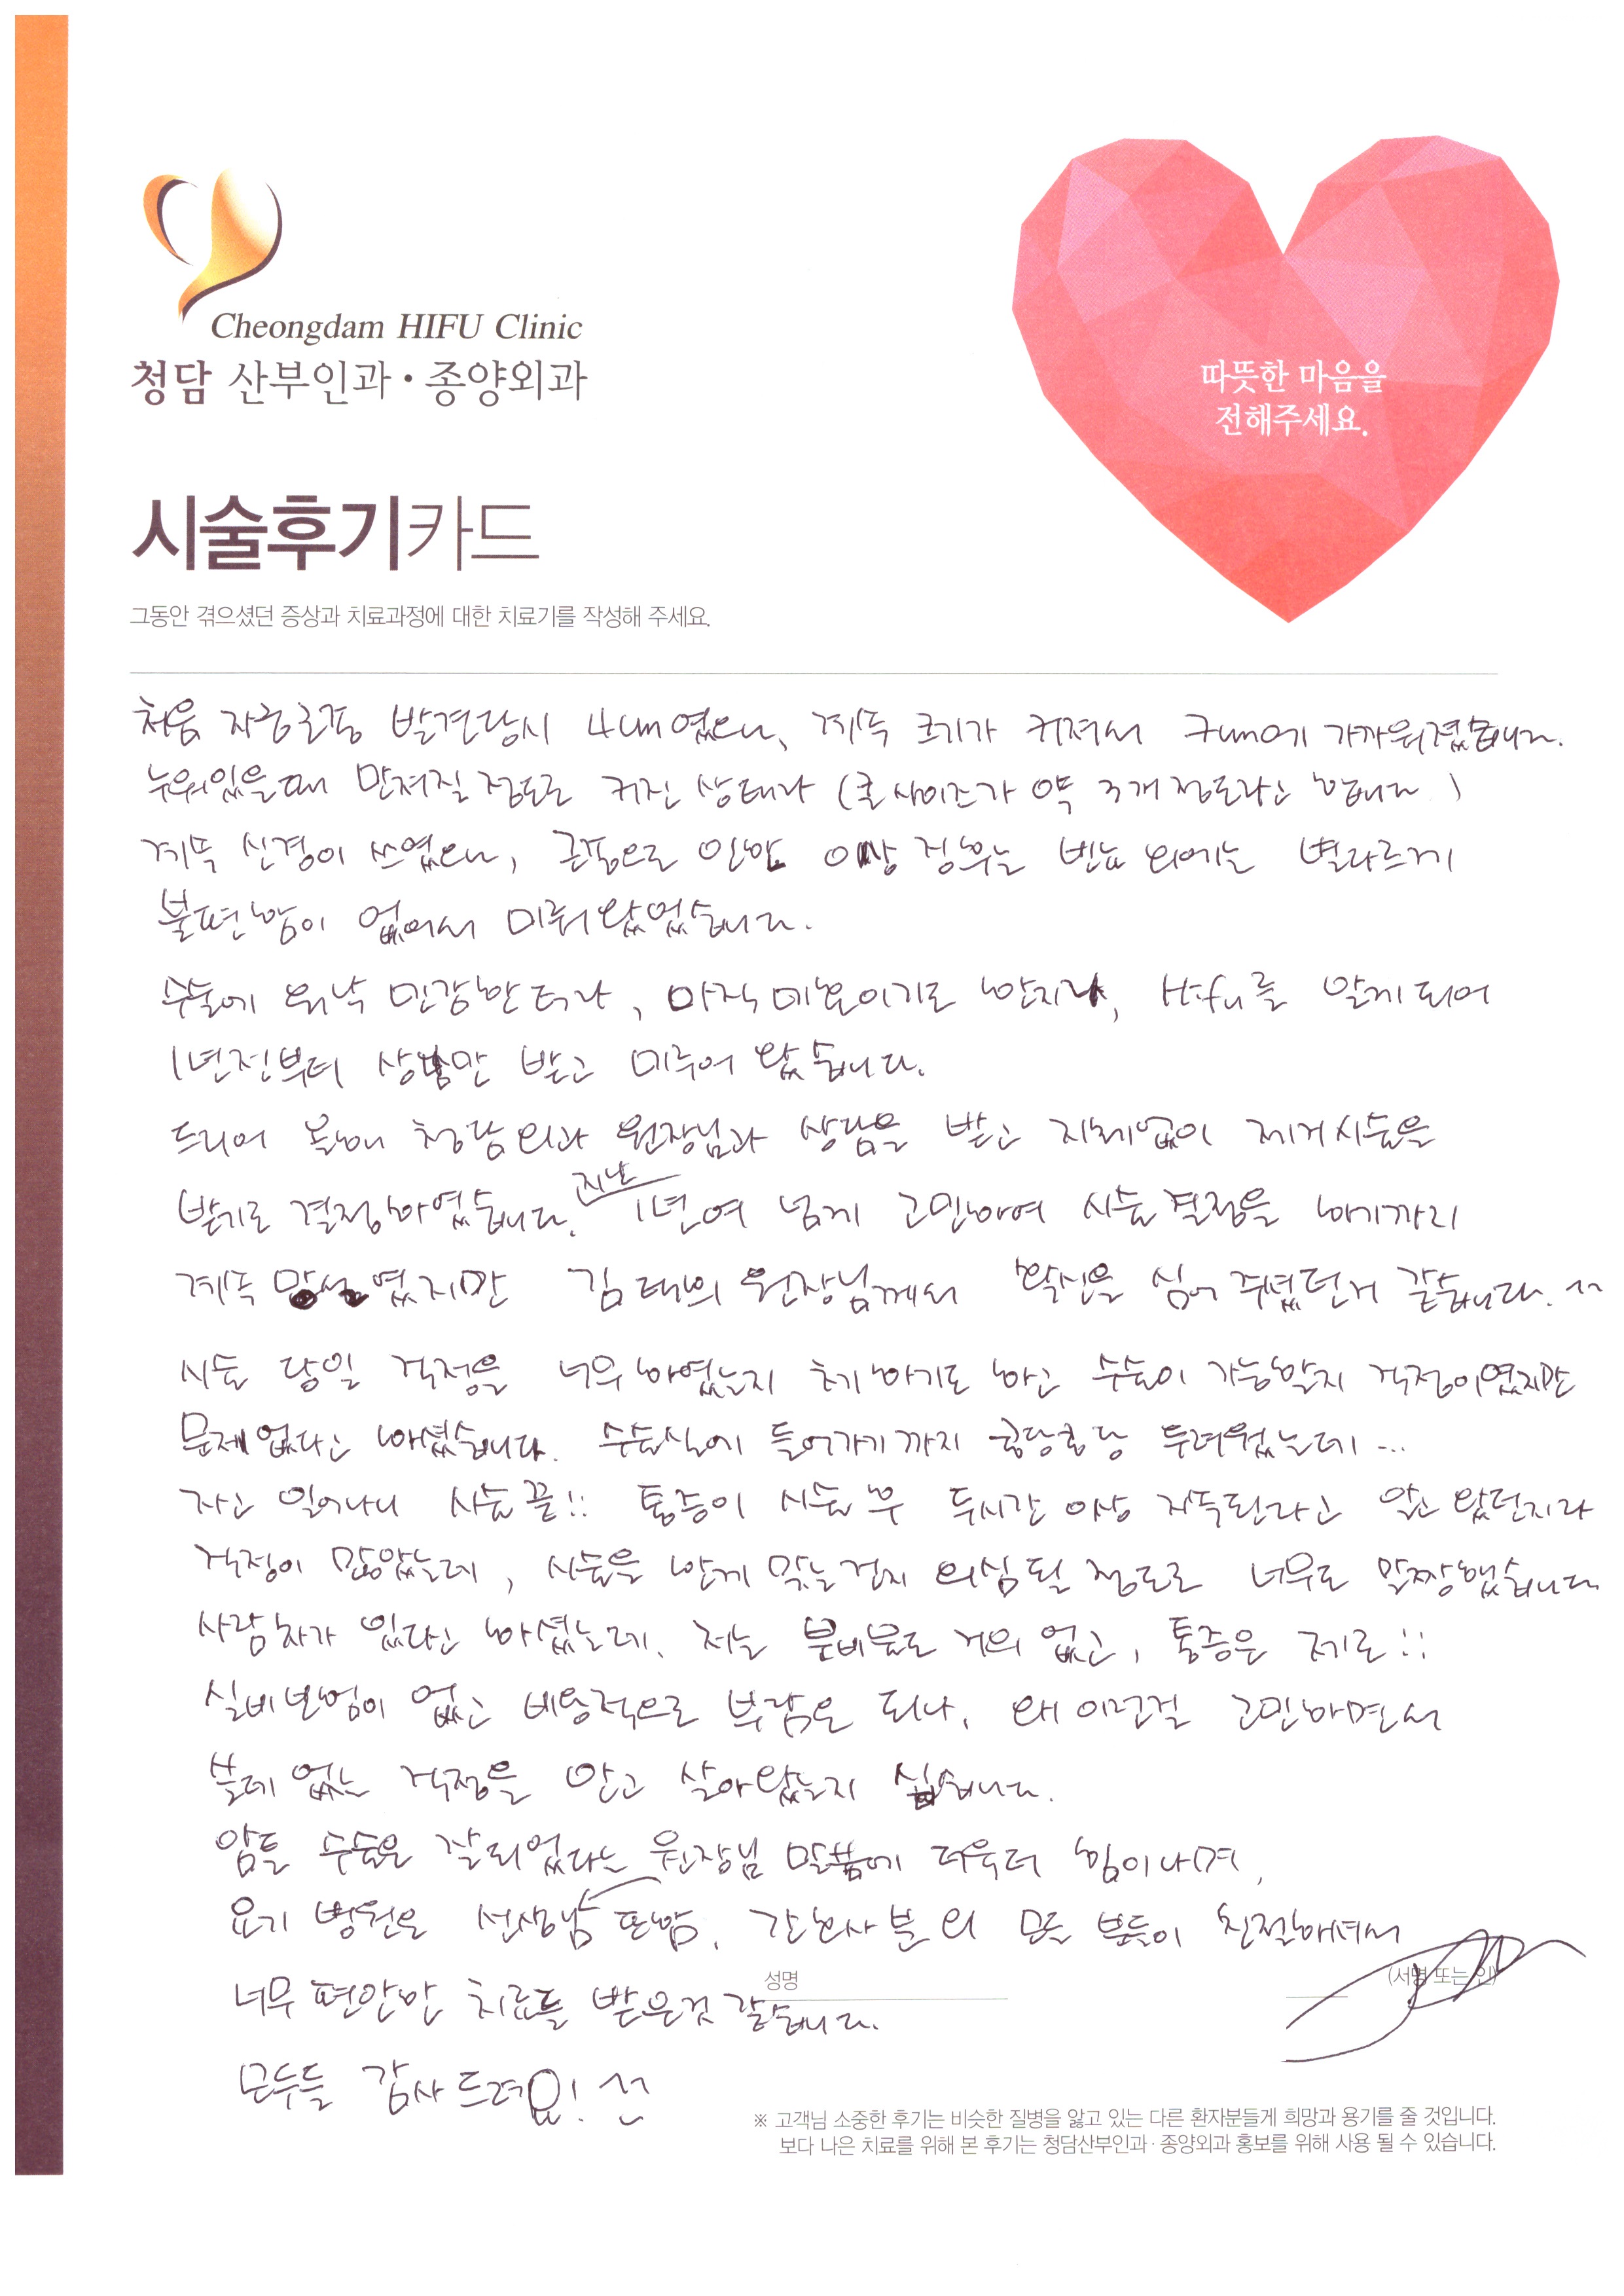 Cheongdam HIFU Clinic
청담 산부인과·종양외과
따뜻한 마음을
전해주세요.
시술후기카드
그동안 겪으셨던 증상과 치료과정에 대한 치료기를 작성해 주세요.
처음 자궁근종 발견당시 4cm 였으나, 계속 크기가 커져서 7cm에 가까워졌습니다.
누워있을때 만져질 정도로 커진 상태라 (혹 사이즈가 약 3개 정도라고 합니다.)
계속 신경이 쓰였으나, 근종으로 인한 이상 징후는 빈뇨 외에는 별다르게
불편함이 없어서 미뤄왔었습니다.
수술에 워낙 민감한 터라, 아직 미혼이기도 한지라, Hifu를 알게 되어
1년전부터 상담만 받고 미루어 왔습니다.
드디어 올해 청담외과 원장님과 상담을 받고 지체없이 제거시술을
받기로 결정하였습니다. 지난 1년여 넘게 고민하여 시술결정을 하기까지
계속 망설였지만 김태희 원장님께서 확신을 심어 주셨던거 같습니다. ^^
시술 당일 걱정을 너무 하였는지 체하기도 하고 수술이 가능할지 걱정이였지만
문제없다고 하셨습니다. 수술실에 들어가기까지 콩당콩당 두려웠는데...
자고 일어나니 시술끝!! 통증이 시술 후 두시간 이상 지속된라고 알고 왔던지라
걱정이 많았는데, 시술을 한게 맞는건지 의심될 정도로 너무도 말짱했습니다
사람차가 있다고 하셨는데, 저는 분비물도 거의 없고, 통증은 제로!!
실비보험이 없고 비용적으로 부담은 되나, 왜 이런걸 고민하면서
쓸데 없는 걱정을 안고 살아왔는지 싶습니다.
암튼 수술은 잘되었다는 원장님 말씀에 더욱더 힘이나며,
요기 병원은 선생님 포함, 간호사분 외 모든 분들이 친절하셔서
너무 편안한 치료를 받은것 같습니다.
성명
(서명 또는 인)
모두들 감사드려요! ^^
※ 고객님 소중한 후기는 비슷한 질병을 앓고 있는 다른 환자분들게 희망과 용기를 줄 것입니다.
보다 나은 치료를 위해 본 후기는 청담산부인과·종양외과 홍보를 위해 사용 될 수 있습니다.